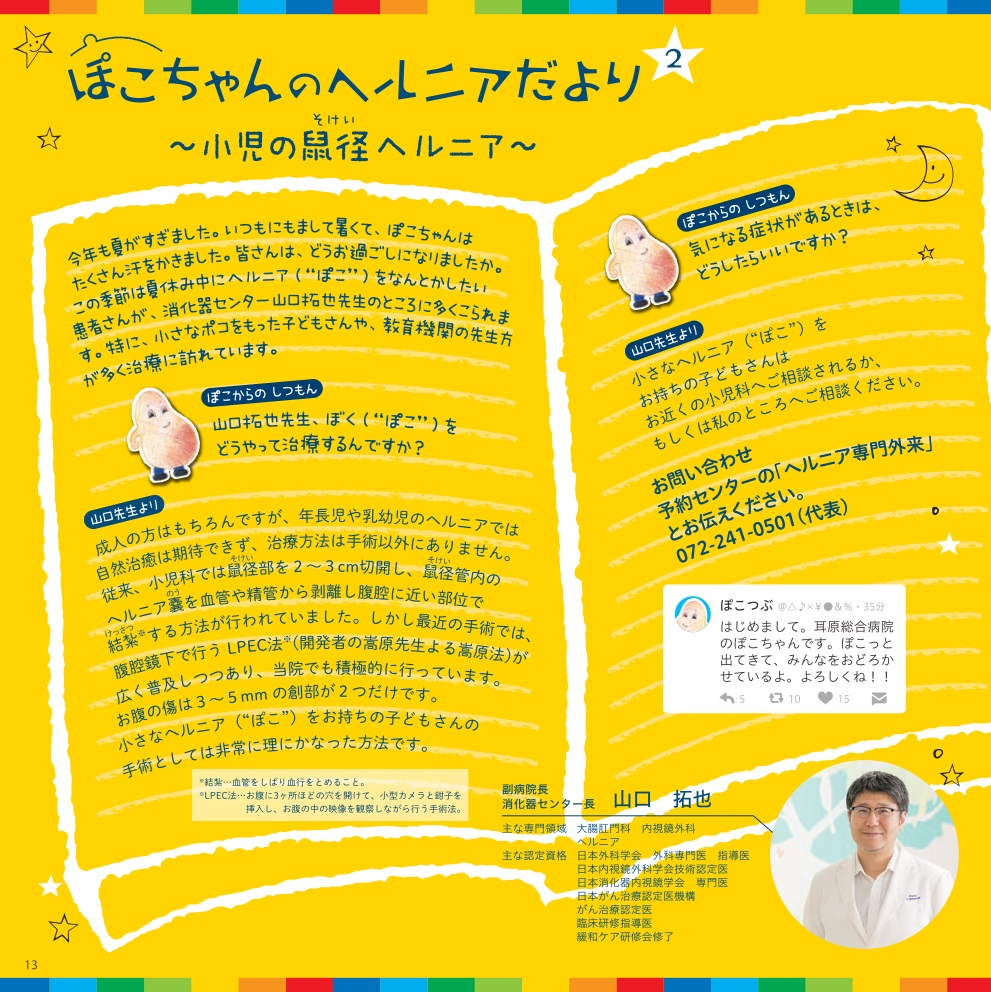 ぽこちゃんのヘルニアだより 2
そけい
～小児の鼠径ヘルニア～
今年も夏がすぎました。いつもにもまして暑くて、ぽこちゃんは
たくさん汗をかきました。皆さんは、どうお過ごしになりましたか。
この季節は夏休み中にヘルニア（“ぽこ”）をなんとかしたい
患者さんが、消化器センター山口拓也先生のところに多くこられま
す。特に、小さなポコをもった子どもさんや、教育機関の先生方
が多く治療に訪れています。
ぽこからの しつもん
山口拓也先生、ぼく（“ぽこ”）を
どうやって治療するんですか？
山口先生より
成人の方はもちろんですが、年長児や乳幼児のヘルニアでは
自然治癒は期待できず、治療方法は手術以外にありません。
そけい そけい
従来、小児科では鼠径部を２～３cm切開し、鼠径管内の
のう
ヘルニア嚢を血管や精管から剥離し腹腔に近い部位で
けっさつ
結紮※する方法が行われていました。しかし最近の手術では、
腹腔鏡下で行う LPEC法※（開発者の嵩原先生よる嵩原法）が
広く普及しつつあり、当院でも積極的に行っています。
お腹の傷は３～５mm の創部が２つだけです。
小さなヘルニア（“ぽこ”）をお持ちの子どもさんの
手術としては非常に理にかなった方法です。
*結紮…血管をしばり血行をとめること。
*LPEC法…お腹に3ヶ所ほどの穴を開けて、小型カメラと鉗子を
挿入し、お腹の中の映像を観察しながら行う手術法。
ぽこからの しつもん
気になる症状があるときは、
どうしたらいいですか？
山口先生より
小さなヘルニア（“ぽこ”）を
お持ちの子どもさんは
お近くの小児科へご相談されるか、
もしくは私のところへご相談ください。
お問い合わせ
予約センターの「ヘルニア専門外来」
とお伝えください。
072-241-0501（代表）
ぽこつぶ @△♪×￥●＆％・35分
はじめまして。耳原総合病院
のぽこちゃんです。ぽこっと
出てきて、みんなをおどろか
せているよ。よろしくね！！
5 10 15
副病院長
消化器センター長 山口 拓也
主な専門領域 大腸肛門科 内視鏡外科
ヘルニア
主な認定資格 日本外科学会 外科専門医 指導医
日本内視鏡外科学会技術認定医
日本消化器内視鏡学会 専門医
日本がん治療認定医機構
がん治療認定医
臨床研修指導医
緩和ケア研修会修了
13